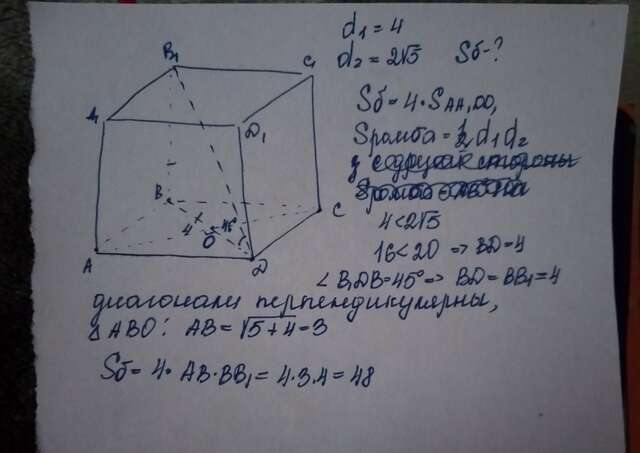 d₁ = 4
d₂ = 2√5 Sб-?
B₁
C₁
A₁
D₁
B
C
4
45°
O
A
D
Sб = 4·SAA₁DD₁
Sромба = ½ d₁d₂
4<2√5
16<20 => BD=4
∠B₁DB=45° => BD=BB₁=4
диагонали перпендикулярны,
△ABO: AB=√5+4=3
Sб= 4· AB·BB₁= 4·3·4 = 48